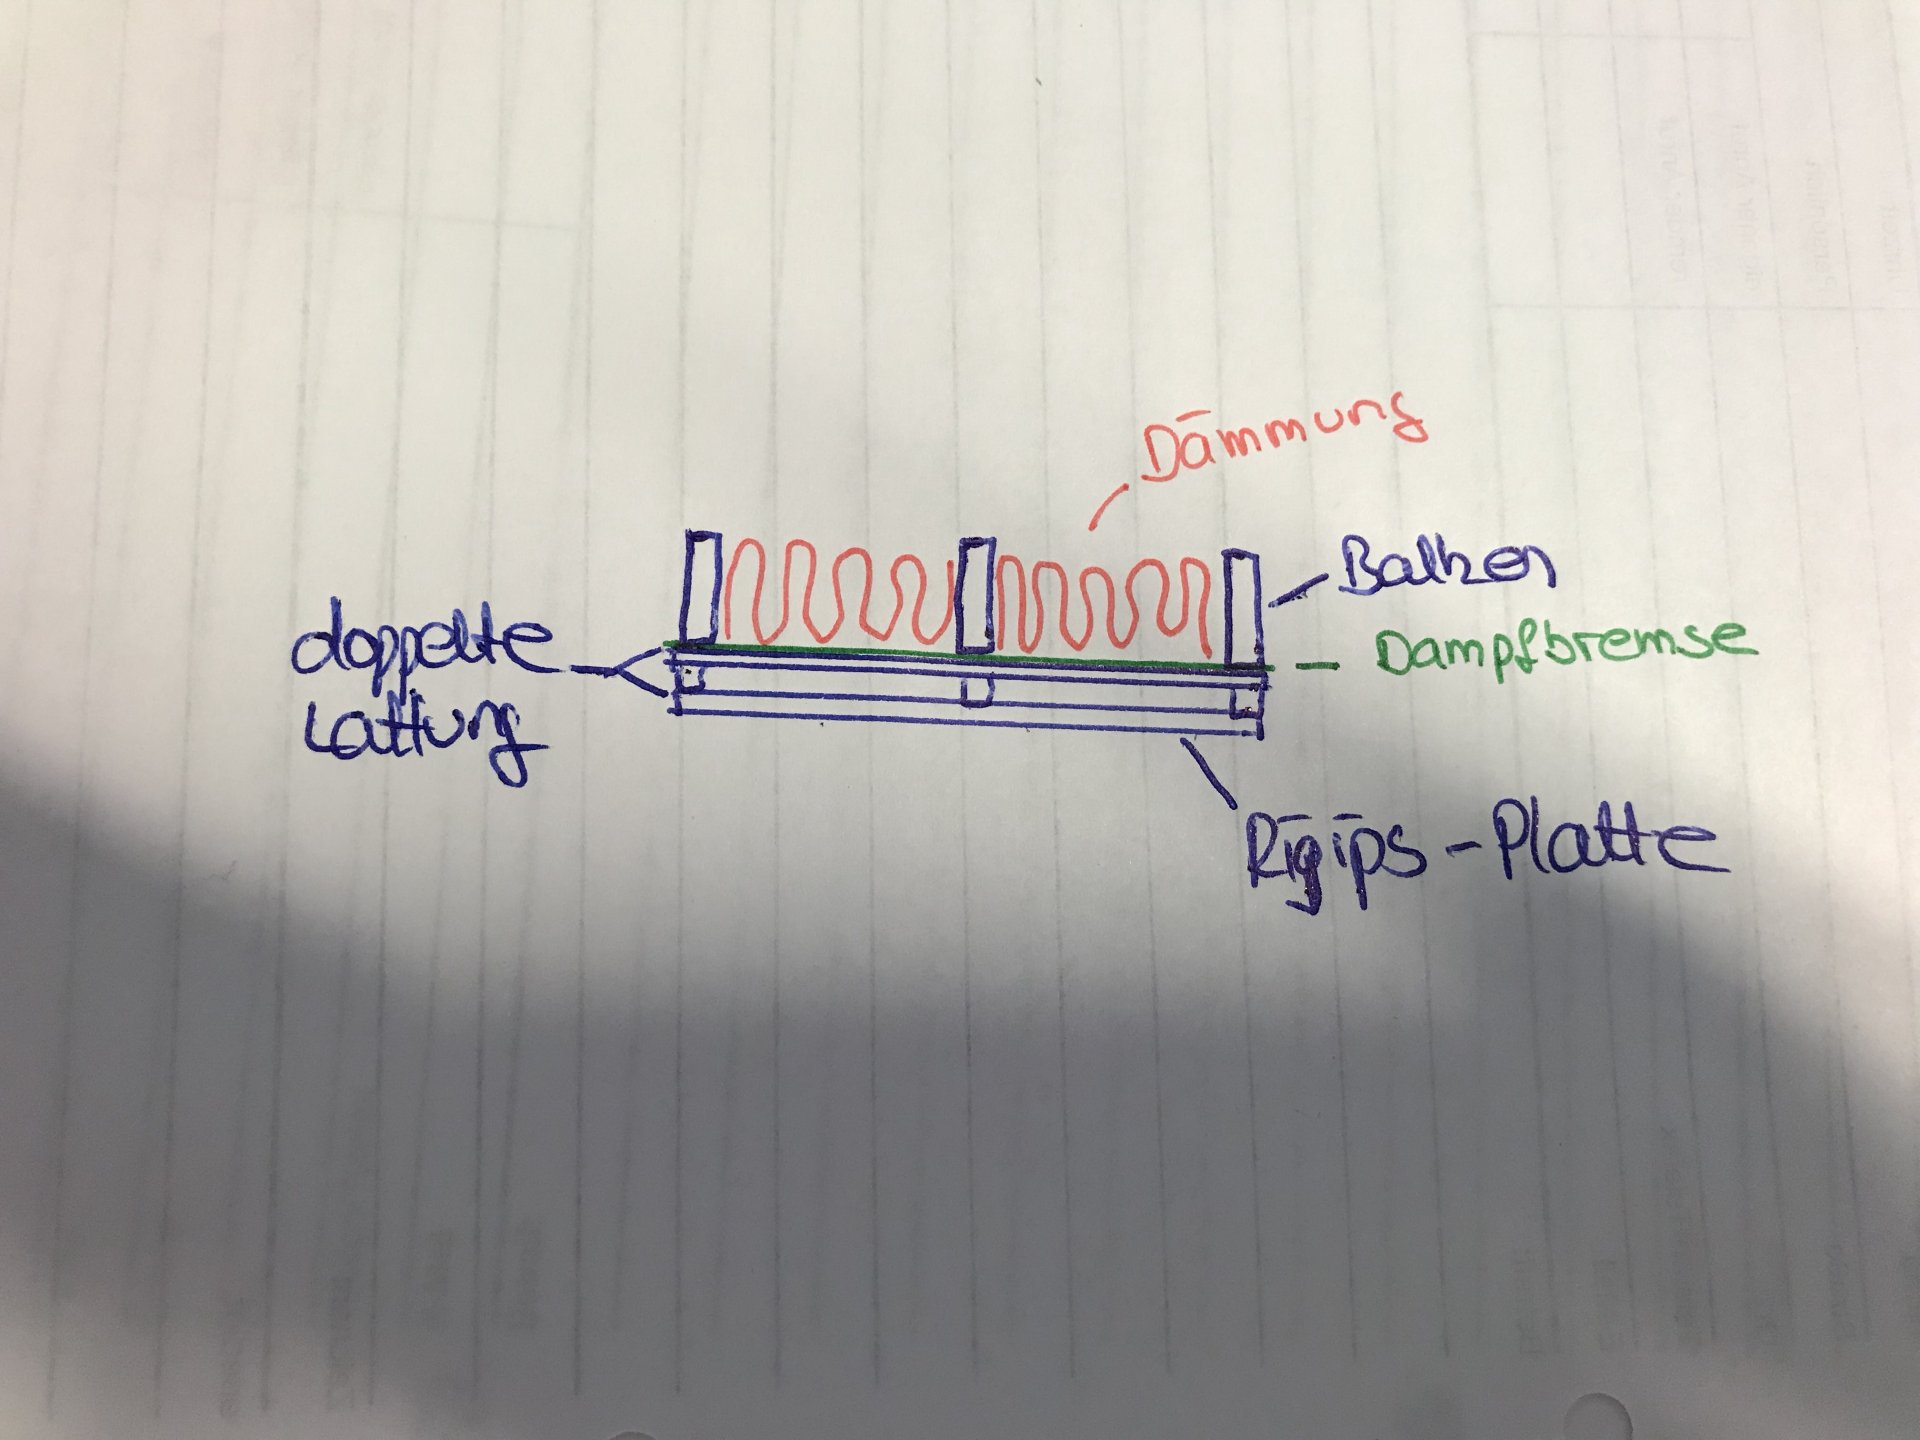 Dämmung
Balken
doppelte
Lattung
Dampfbremse
Rigips-Platte